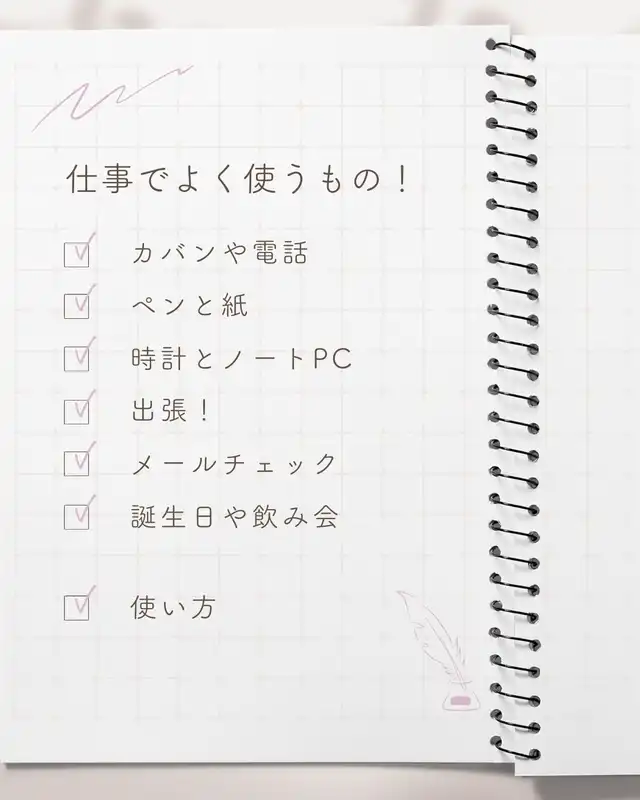 仕事でよく使うもの！
カバンや電話
ペンと紙
時計とノートPC
出張！
メールチェック
誕生日や飲み会
使い方